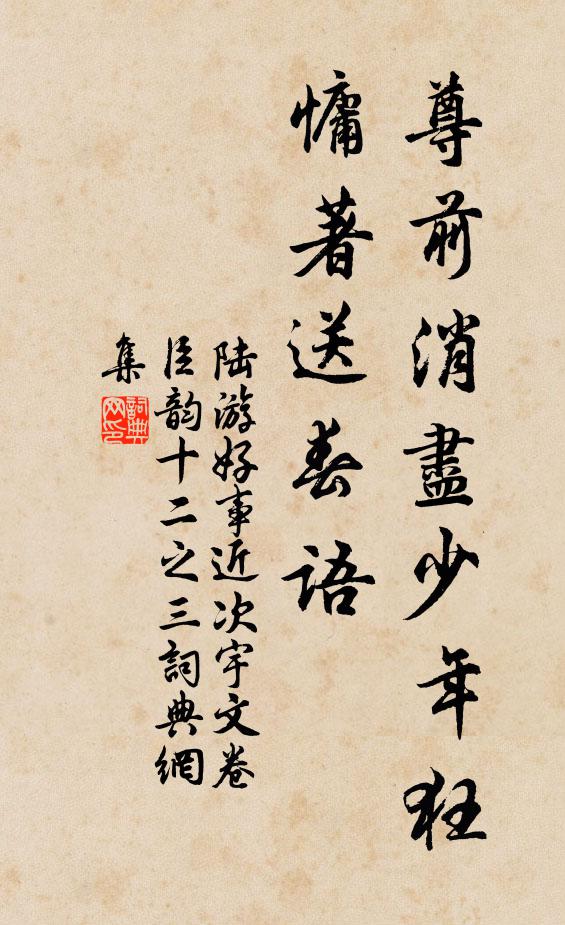 尊前消盡少年狂
慵著送春語
陸游好事近次宇文卷
臣韵十二之三詞典網
集
詞典
网印